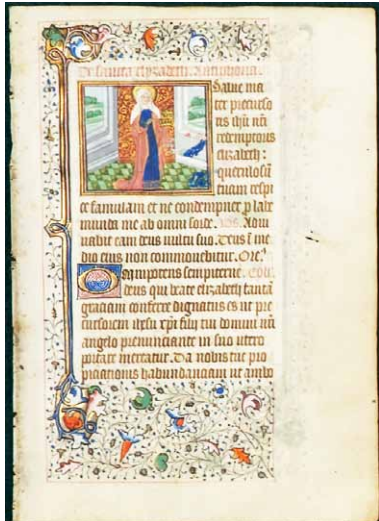 De sancta elyzabeth. Antiphona.
Salue ma
ter precurso
ris ihu nri
redemptoris
elizabeth:
tuam respi
ce famulam et ne condempner p labe
munda me ab omni sorde. Adiu
uabit eam deus uultu suo. Deus i me
dio eius non commouebitur. Ore
Omnipotens sempiterne
deus qui beate elizabeth tantā
graciam conferre dignatus es ut pre
cursorem ihesu xpi filij tui domini nri
angelo prenunciante in suo utero
portare mereatur. Da nobis tue pro
piciationis habundanciam ut ambo